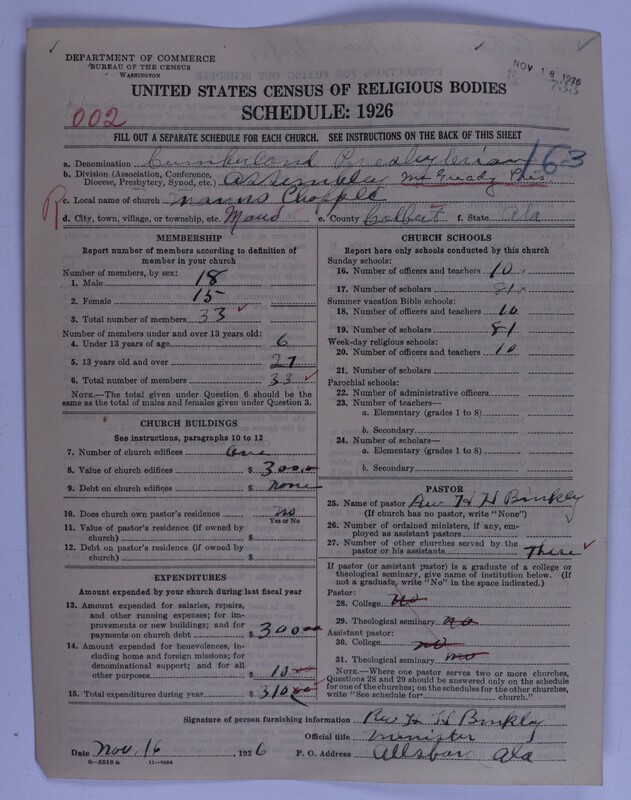 DEPARTMENT OF COMMERCE
BUREAU OF THE CENSUS
WASHINGTON
NOV 18 1926
UNITED STATES CENSUS OF RELIGIOUS BODIES
SCHEDULE: 1926
002
FILL OUT A SEPARATE SCHEDULE FOR EACH CHURCH. SEE INSTRUCTIONS ON THE BACK OF THIS SHEET
163
a. Denomination Cumberland Presbyterian
b. Division (Association, Conference, Diocese, Presbytery, Synod, etc.) assembley McGready Pres
R
c. Local name of church Manns Chapple
d. City, town, village, or township, etc. Maud e. County Colbert f. State Ala
MEMBERSHIP
Report number of members according to definition of member in your church
Number of members, by sex:
1. Male 18
2. Female 15
3. Total number of members 33
Number of members under and over 13 years old:
4. Under 13 years of age 6
5. 13 years old and over 27
6. Total number of members 33
NOTE.—The total given under Question 6 should be the same as the total of males and females given under Question 3.
CHURCH BUILDINGS
See instructions, paragraphs 10 to 12
7. Number of church edifices one
8. Value of church edifices $ 300.00
9. Debt on church edifices $ none
10. Does church own pastor's residence no
Yes or No
11. Value of pastor's residence (if owned by church) $
12. Debt on pastor's residence (if owned by church) $
EXPENDITURES
Amount expended by your church during last fiscal year
13. Amount expended for salaries, repairs, and other running expenses; for improvements or new buildings; and for payments on church debt $ 300 00
14. Amount expended for benevolences, including home and foreign missions; for denominational support; and for all other purposes $ 10 00
15. Total expenditures during year $ 310 00
CHURCH SCHOOLS
Report here only schools conducted by this church
Sunday schools:
16. Number of officers and teachers 10
17. Number of scholars 81
Summer vacation Bible schools:
18. Number of officers and teachers 10
19. Number of scholars 81
Week-day religious schools:
20. Number of officers and teachers 10
21. Number of scholars
Parochial schools:
22. Number of administrative officers
23. Number of teachers—
a. Elementary (grades 1 to 8)
b. Secondary
24. Number of scholars—
a. Elementary (grades 1 to 8)
b. Secondary
PASTOR
25. Name of pastor Rev H H Binkly
(If church has no pastor, write "None")
26. Number of ordained ministers, if any, employed as assistant pastors
27. Number of other churches served by the pastor or his assistants three
If pastor (or assistant pastor) is a graduate of a college or theological seminary, give name of institution below. (If not a graduate, write "No" in the space indicated.)
Pastor:
28. College no
29. Theological seminary no
Assistant pastor:
30. College no
31. Theological seminary no
NOTE.—Where one pastor serves two or more churches, Questions 28 and 29 should be answered only on the schedule for one of the churches; on the schedules for the other churches, write "See schedule for church."
Signature of person furnishing information Rev H H Binkly
Official title minister
Date Nov. 16, 1926 P. O. Address Allsboro Ala
8—5518 a 11—9084